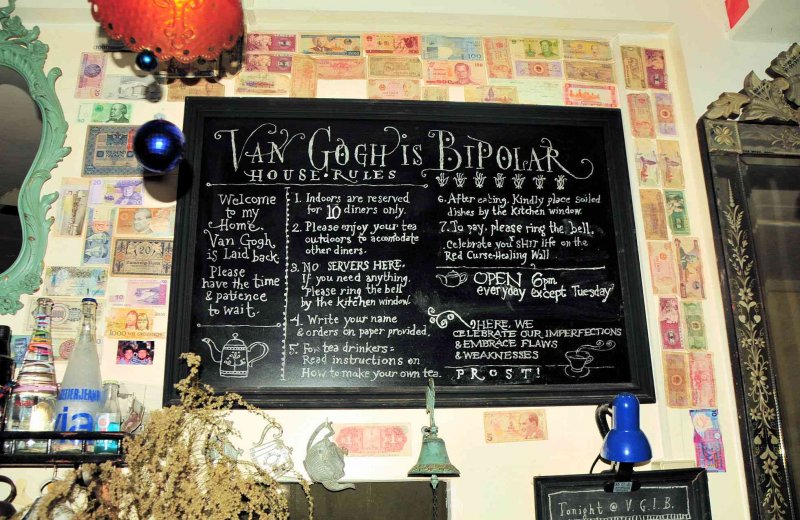 VAN GOGH IS BIPOLAR
HOUSE·RULES
Welcome
to my
Home.
Van Gogh
is Laid back.
Please
have the time
& patience
to wait.
1. Indoors are reserved
for 10 diners only.
2. Please enjoy your tea
outdoors to accomodate
other diners.
3. NO SERVERS HERE.
If you need anything,
Please ring the bell
by the kitchen window.
4. Write your name
& orders on paper provided.
5. For tea drinkers:
Read instructions on
How to make your own tea.
6. After eating, Kindly place soiled
dishes by the Kitchen window.
7. To pay, please ring the bell.
Celebrate you
life on the
Red Curse-Healing Wall
OPEN 6pm
everyday except Tuesday
HERE, WE
CELEBRATE OUR IMPERFECTIONS
& EMBRACE FLAWS
& WEAKNESSES
PROST!
Tonight @ V.G.I.B.